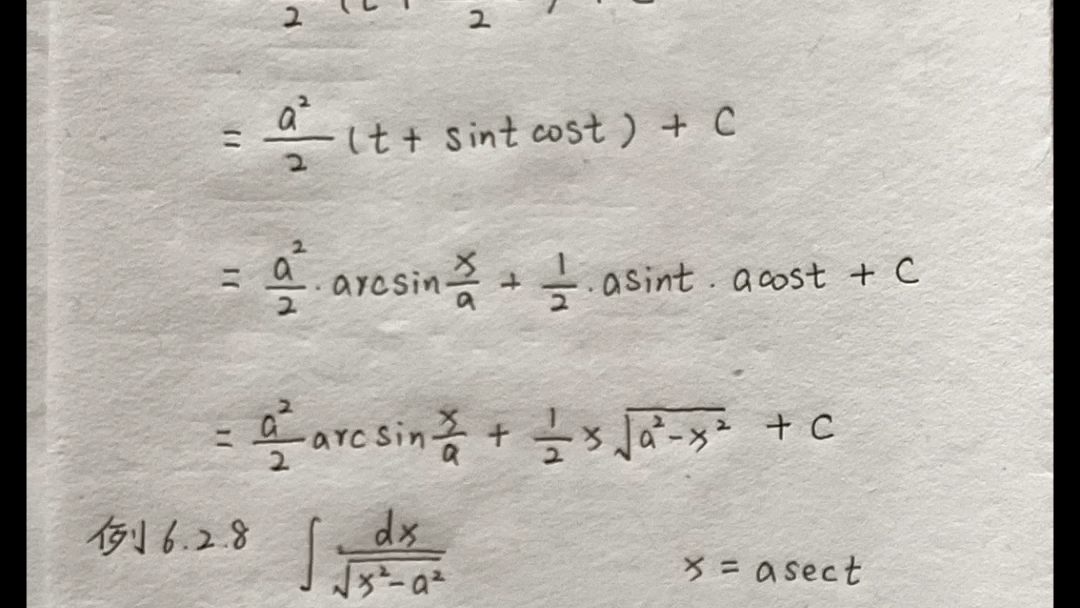 = a²/2 (t + sint cost) + C
= a²/2 · arcsin x/a + 1/2 · asint · acost + C
= a²/2 arcsin x/a + 1/2 x √(a²-x²) + C
例 6.2.8 ∫ dx/√(x²-a²) x = asect